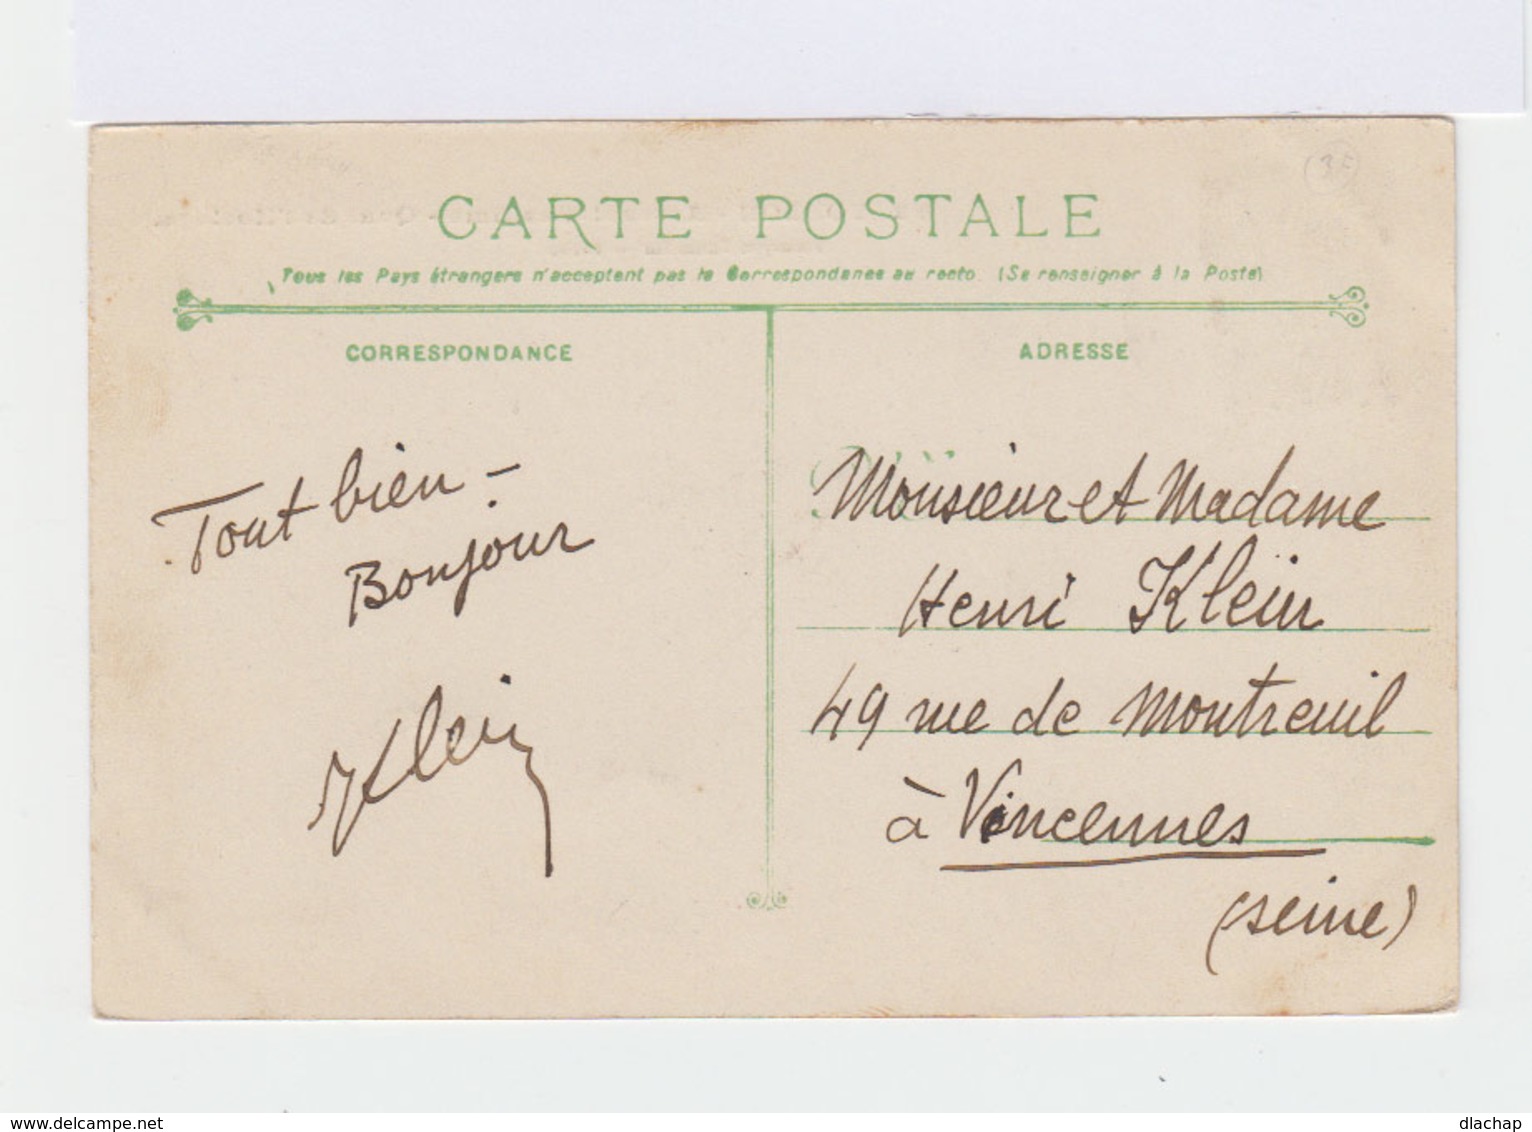 CARTE POSTALE
Tous les Pays étrangers n'acceptent pas la Correspondance au recto. (Se renseigner à la Poste)
CORRESPONDANCE
Tout bien -
Bonjour
Klein
ADRESSE
Monsieur et Madame
Henri Klein
49 rue de Montreuil
à Vincennes
(Seine)
delcampe.net
dlachap